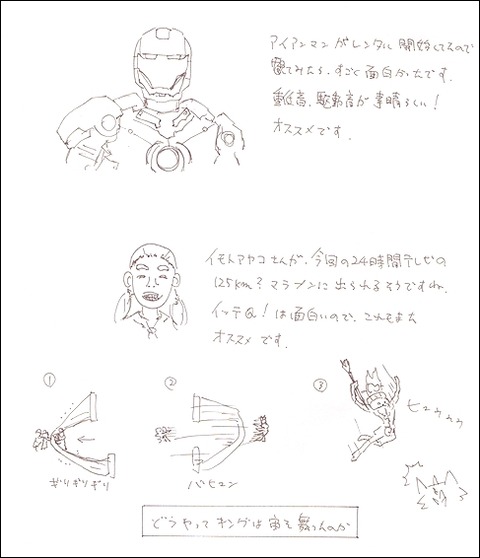 アイアンマンがレンタル開始してたので
観てみたら、すごく面白かったです。
重低音、駆動音が素晴らしい!
オススメです。
イモトアヤコさんが、今回の24時間テレビの
125km?マラソンに出られるそうですね。
イッテQ!は面白いので、これもまた
オススメです。
① ② ③
ギリギリギリ
バヒュン
ヒュウウウ
どうやってキングは宙を舞うのか